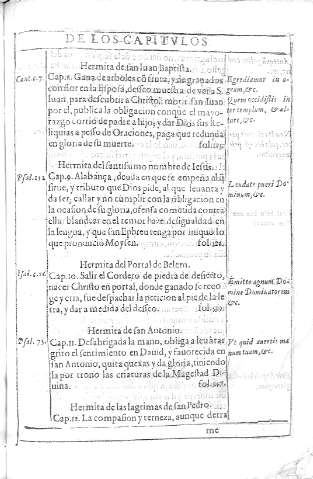 DE LOS CAPITVLOS
Hermita de san Iuan Baptista.
Cant. 6. 7.
Cap. 8. Gana de arboles cõ fruta, y de granados
con flor en la Esposa, deseo muestra de ver a S.
Iuan, para descubrir a Christo: morir san Iuan
por el, publica la obligacion conque el mayo-
razgo corrio de padre a hijo; y dar Dios sus Re-
liquias a peso de Oraciones, paga que redunda
en gloria de su muerte.
Egrediamur in
agrum, &c.
Quem occidistis in
ter templum, & al-
tare, &c.
Hermita del santissimo nombre de Iesus.
Psal. 112.
Cap. 9. Alabança, deuda en que se empeña al q̃
sirue, y tributo que Dios pide, al que leuanta y
da ser; callar y no cumplir con la obligacion en
la ocasion de su gloria, ofensa cometida contra
ella: blandear en el temor haze desigualdad en
la lengua, y que san Ephren tenga por iniquo lo
que pronunciò Moysen.
Laudate pueri Do-
minum, &c.
Hermita del Portal de Belem.
Isai. c. 16.
Cap. 10. Salir el Cordero de piedra de desierto,
nacer Christo en portal, donde ganado se reco-
ge y cria, fue despachar la peticion al pie de la le-
tra, y dar a medida del deseo.
Emitte agnum Do-
mine Dominatorem
&c.
Hermita de san Antonio.
Psal. 73.
Cap. 11. Desabrigada la mano, obliga a leuãtar
grito el sentimiento en Dauid, y fauorecida en
san Antonio, quita quexas y da gloria, tiniendo
la por trono las criaturas de la Magestad Di-
uina.
Vt quid auertis ma
num tuam, &c.
Hermita de las lagrimas de san Pedro.
Cap. 12. La compasion y terneza, aunque detra
me